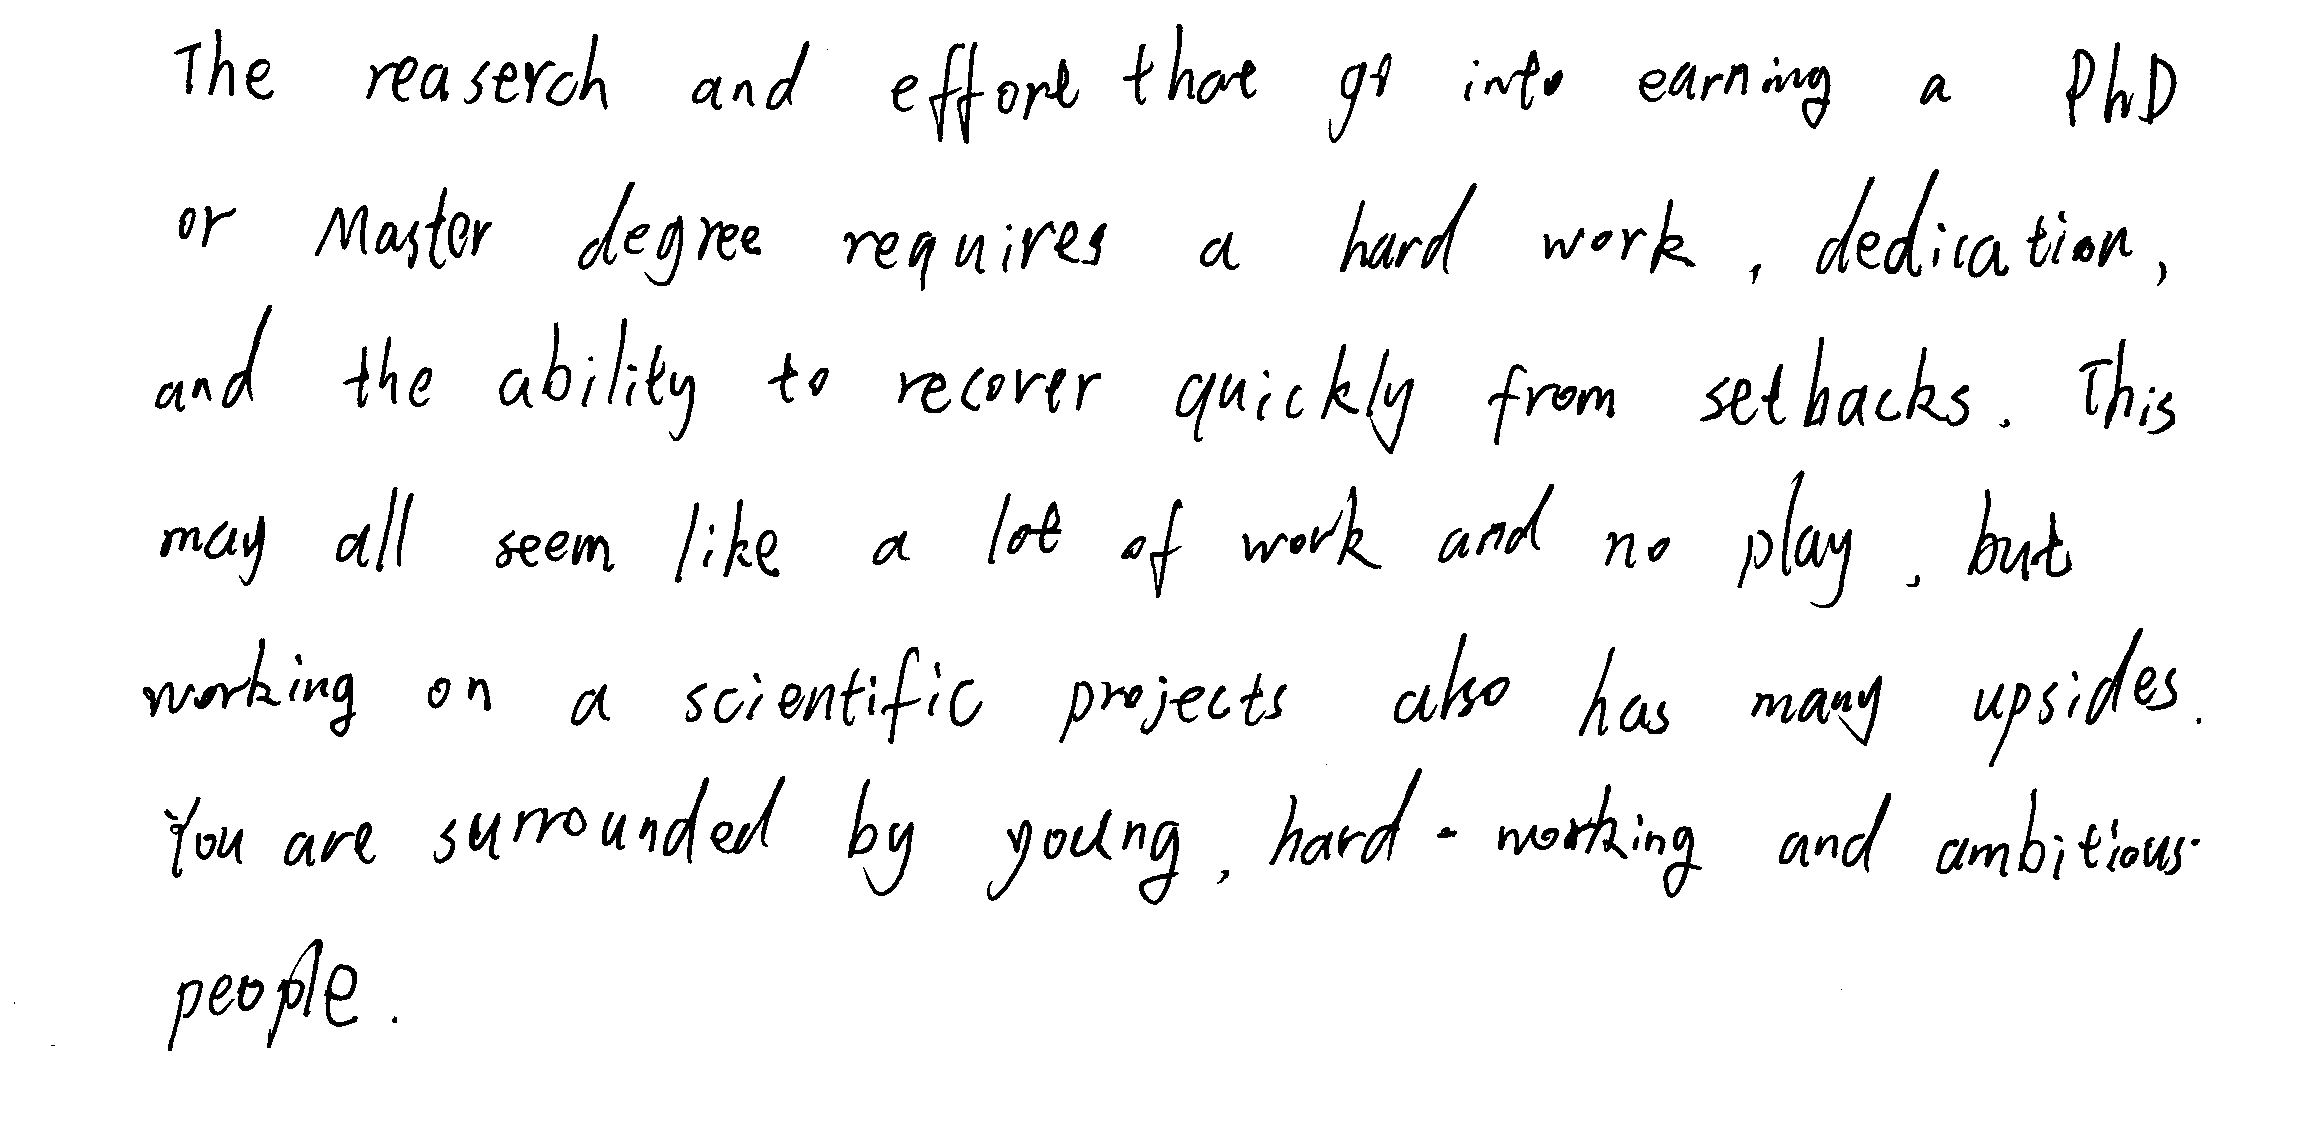 The reaserch and effort that go into earning a PhD
or Master degree requires a hard work, dedication,
and the ability to recover quickly from setbacks. This
may all seem like a lot of work and no play, but
working on a scientific projects also has many upsides.
You are surrounded by young, hard-working and ambitious
people.